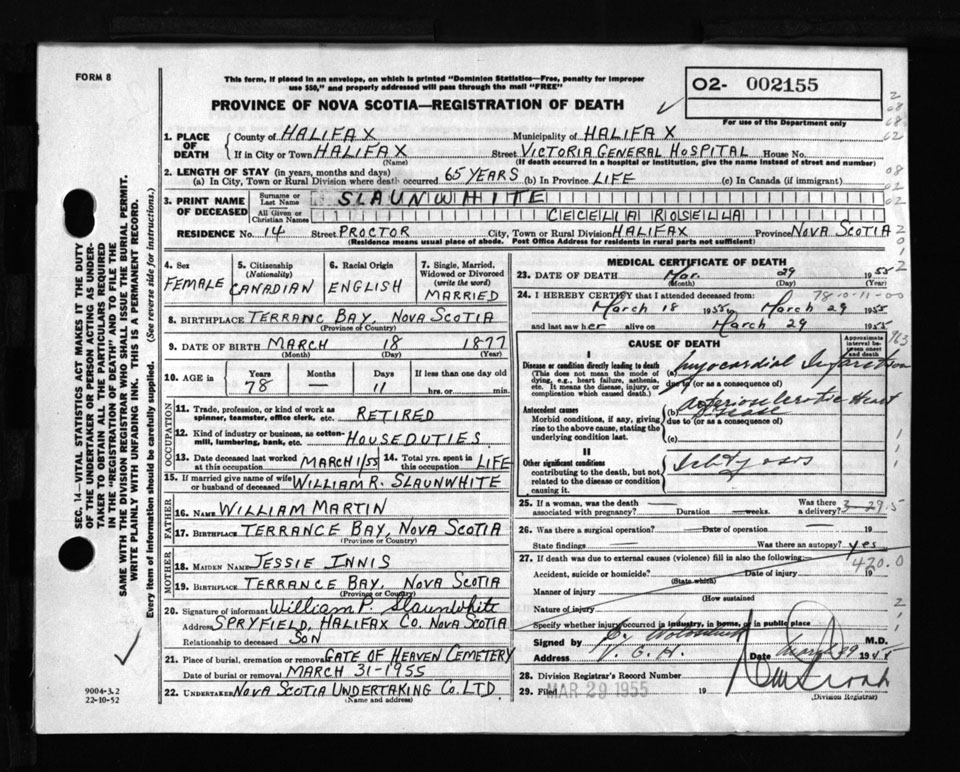 FORM 8
This form, if placed in an envelope, on which is printed "Dominion Statistics—Free, penalty for improper
use $50," and properly addressed will pass through the mail "FREE"
PROVINCE OF NOVA SCOTIA—REGISTRATION OF DEATH
O2- 002155
For use of the Department only
1. PLACE OF DEATH
County of HALIFAX Municipality of HALIFAX
If in City or Town HALIFAX Street VICTORIA GENERAL HOSPITAL House No.
(Name) (If death occurred in a hospital or institution, give the name instead of street and number)
2. LENGTH OF STAY (in years, months and days)
(a) In City, Town or Rural Division where death occurred 65 YEARS (b) In Province LIFE (c) In Canada (if immigrant)
3. PRINT NAME OF DECEASED
Surname or Last Name SLAUNWHITE
All Given or Christian Names CECELIA ROSELLA
RESIDENCE No. 14 Street PROCTOR City, Town or Rural Division HALIFAX Province NOVA SCOTIA
(Residence means usual place of abode. Post Office Address for residents in rural parts not sufficient)
4. Sex
FEMALE
5. Citizenship (Nationality)
CANADIAN
6. Racial Origin
ENGLISH
7. Single, Married, Widowed or Divorced (write the word)
MARRIED
8. BIRTHPLACE TERRANC BAY, NOVA SCOTIA
(Province or Country)
9. DATE OF BIRTH MARCH 18 1877
(Month) (Day) (Year)
10. AGE in Years Months Days If less than one day old
78 — 11 hrs. or min.
OCCUPATION
11. Trade, profession, or kind of work as spinner, teamster, office clerk, etc. RETIRED
12. Kind of industry or business, as cotton-mill, lumbering, bank, etc. HOUSE DUTIES
13. Date deceased last worked at this occupation MARCH 1/55 14. Total yrs. spent in this occupation LIFE
15. If married give name of wife or husband of deceased WILLIAM R. SLAUNWHITE
FATHER
16. NAME WILLIAM MARTIN
17. BIRTHPLACE TERRANCE BAY, NOVA SCOTIA
(Province or Country)
MOTHER
18. MAIDEN NAME JESSIE INNIS
19. BIRTHPLACE TERRANCE BAY, NOVA SCOTIA
(Province or Country)
20. Signature of informant William P. Slaunwhite
Address SPRYFIELD, HALIFAX CO. NOVA SCOTIA
Relationship to deceased SON
21. Place of burial, cremation or removal GATE OF HEAVEN CEMETERY
Date of burial or removal MARCH 31-1955
22. UNDERTAKER NOVA SCOTIA UNDERTAKING CO. LTD.
(Name and address)
MEDICAL CERTIFICATE OF DEATH
23. DATE OF DEATH Mar. 29 1955
(Month) (Day)
78-0-11-00
24. I HEREBY CERTIFY that I attended deceased from:
March 18 1955 to March 29 1955
and last saw her alive on March 29 1955
CAUSE OF DEATH
Approximate interval between onset and death
I
Disease or condition directly leading to death
(This does not mean the mode of dying, e.g., heart failure, asthenia, etc. It means the disease, injury, or complication which caused death.)
(a) myocardial Infarction
due to (or as a consequence of)
Antecedent causes
Morbid conditions, if any, giving rise to the above cause, stating the underlying condition last.
(b) arteriosclerotic Heart Disease
due to (or as a consequence of)
(c)
II
Other significant conditions
contributing to the death, but not related to the disease or condition causing it.
25. If a woman, was the death associated with pregnancy? Duration weeks. Was there a delivery?
3-29-5
26. Was there a surgical operation? Date of operation 19
State findings Was there an autopsy? yes
27. If death was due to external causes (violence) fill in also the following:
420.0
Accident, suicide or homicide? Date of injury 19
(State which)
Manner of injury
(How sustained
Nature of injury
Specify whether injury occurred in industry, in home, or in public place
Signed by M.D.
Address V. G. H. Date March 29 19
28. Division Registrar's Record Number
29. Filed MAR 29 1955 19
(Division Registrar)
SEC. 14—VITAL STATISTICS ACT MAKES IT THE DUTY
OF THE UNDERTAKER OR PERSON ACTING AS UNDER-
TAKER TO OBTAIN ALL THE PARTICULARS REQUIRED
IN THE "REGISTRATION OF DEATH" AND TO FILE THE
SAME WITH THE DIVISION REGISTRAR WHO SHALL ISSUE THE BURIAL PERMIT.
WRITE PLAINLY WITH UNFADING INK. THIS IS A PERMANENT RECORD.
Every item of information should be carefully supplied. (See reverse side for instructions.)
9004-3.2
22-10-52